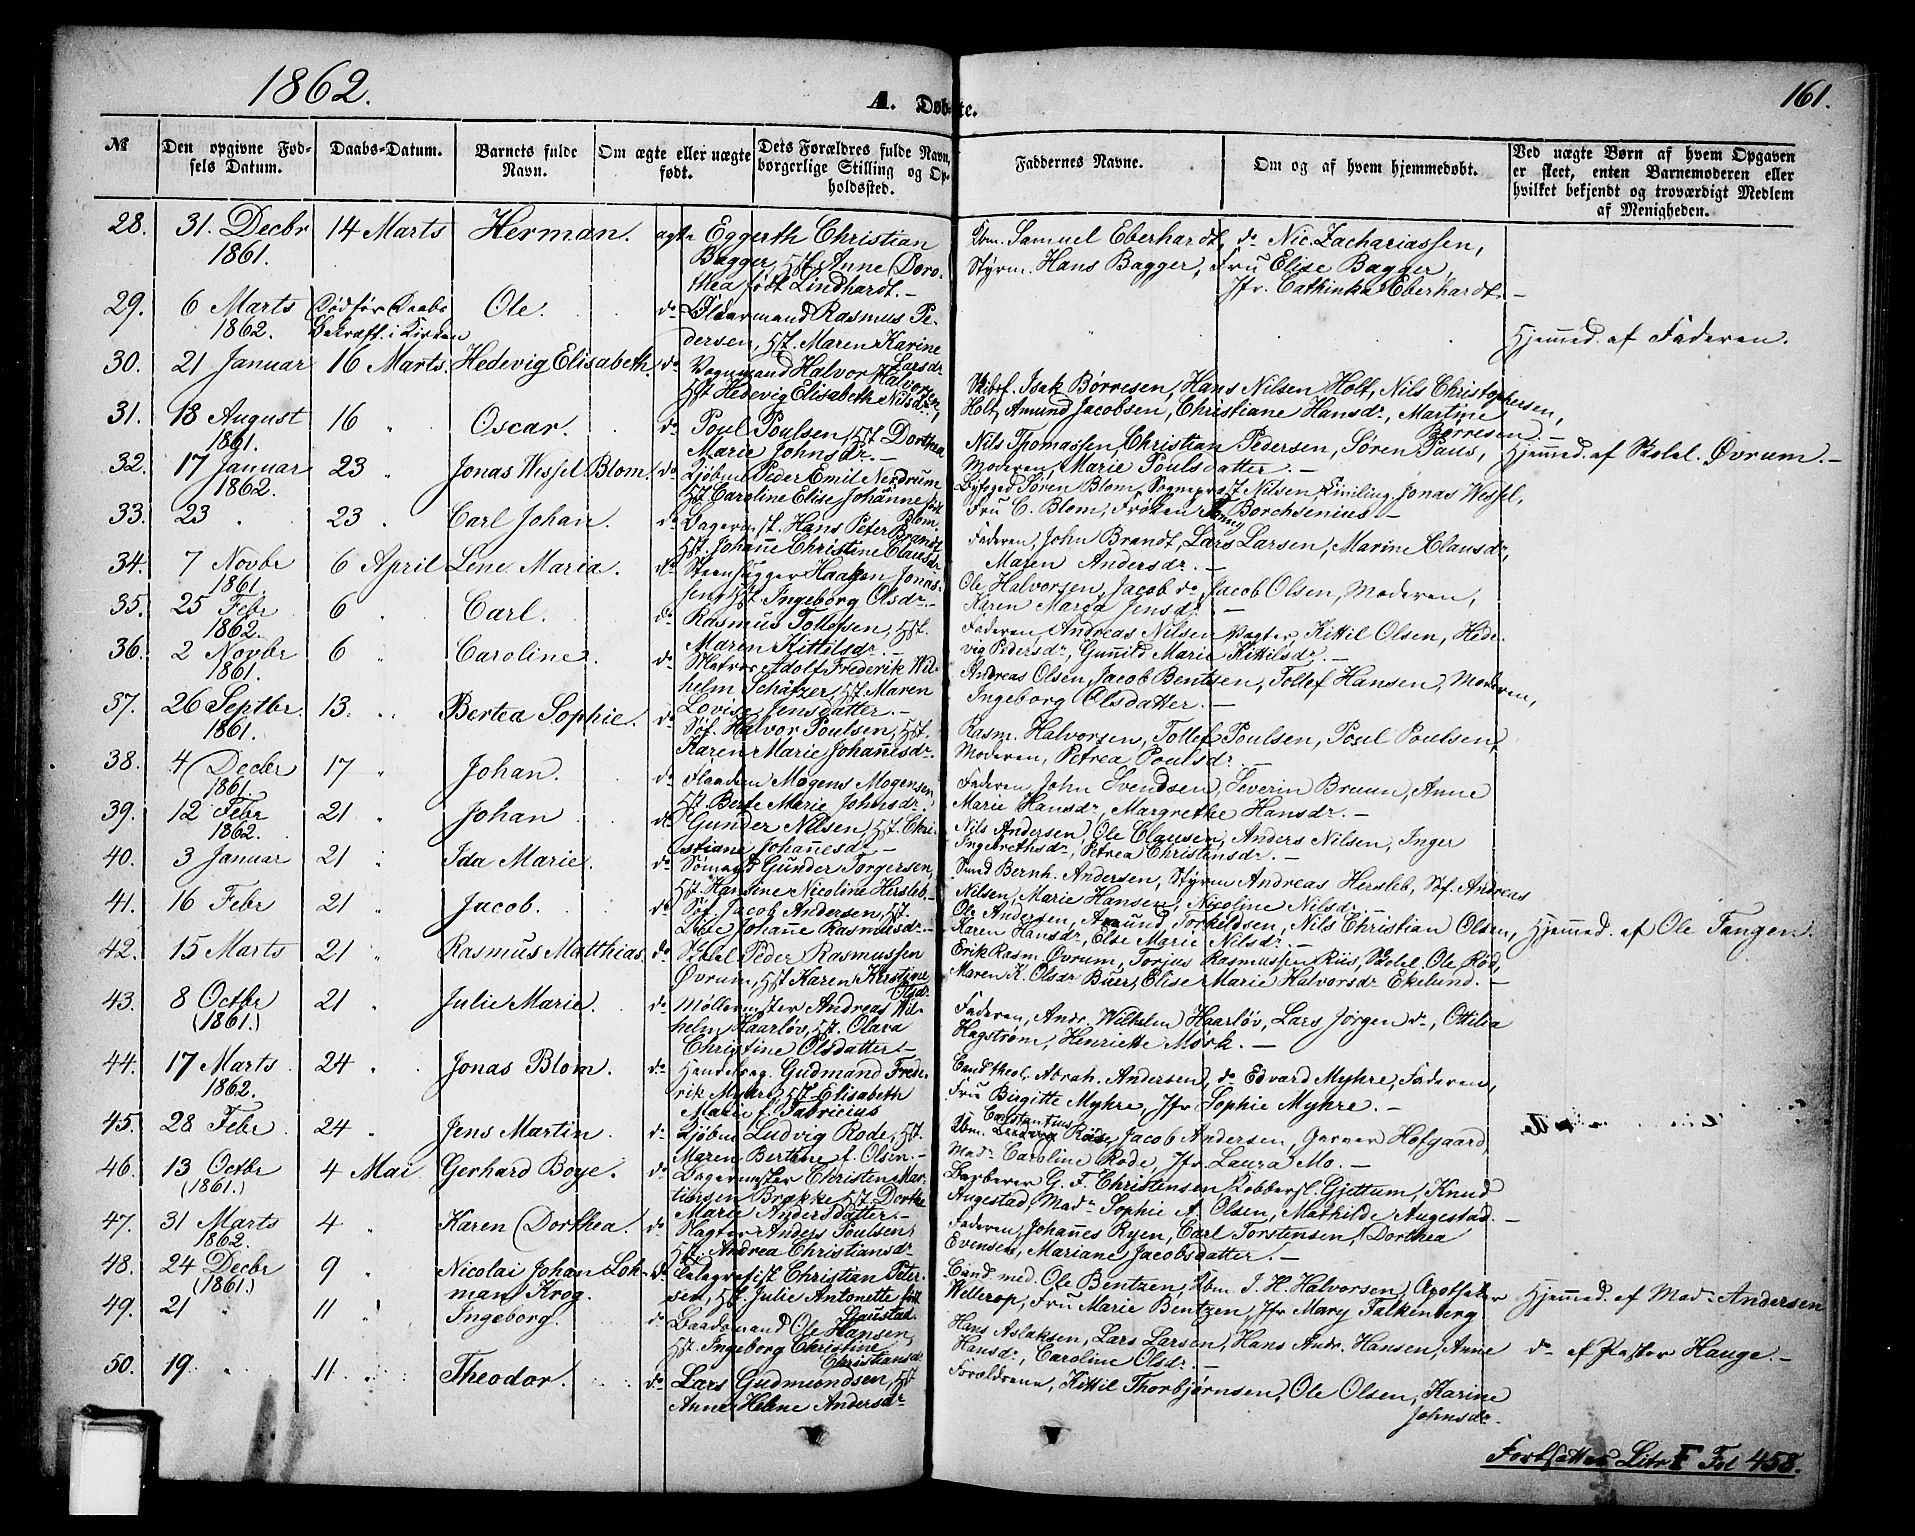 1862.
A. Døbte.
161.
№
Den opgivne Fødsels Datum.
Daabs-Datum.
Barnets fulde Navn.
Om ægte eller uægte født.
Dets Forældres fulde Navn, borgerlige Stilling og Opholdssted.
Faddernes Navne.
Om og af hvem hjemmedøbt.
Ved uægte Børn af hvem Opgaven er skeet, enten Barnemoderen eller hvilket bekjendt og troværdigt Medlem af Menigheden.
28. 31 Decbr 1861. 14 Marts Herman. ægte Eggerth Christian
Bagger, Hst. Anne Dorothea født Lindhardt. —
Kbm. Samuel Eberhardt, do Nic. Zachariassen,
Styrm. Hans Bagger, Fru Elise Bagger,
Jfr. Cathinka Eberhardt. —
29. 6 Marts 1862. Død før Daabs Bekræft. i Kirken Ole. do Oldermand Rasmus Pedersen, Hst. Maren Karine Larsdr
Hjemmed. af Faderen.
30. 21 Januar 16 Marts. Hedevig Elisabeth. do Vognmand Halvor Halvorsen,
Hst Hedevig Elisabeth Nilsdr,
Skibsf. Isak Børresen, Hans Nilsen Holt, Nils Christophersen,
Holt, Amund Jacobsen, Christiane Hansdr, Martine Børresen. —
31. 18 August 1861. 16 " Oscar. do Poul Poulsen, Hst. Dorthea
Marie Johnsdr. —
Nils Thomassen, Christian Pedersen, Søren Paus,
Moderen, Marie Poulsdatter. —
Hjemmed. af Skolel. Øvrum. —
32. 17 Januar 1862. 23 " Jonas Wessel Blom. do Kjøbm Peder Emil Nerdrum
Hst Caroline Elise Johanne født Blom.
Byfoged Søren Blom, Sogneprest Nilsen, Jonas Wessel,
Fru C. Blom, Frøken Fanny Borchsenius —
33. 23 " 23 " Carl Johan. do Hans Peter Brandt
Hst. Johanne Christine Clausdr
Faderen, John Brandt, Lars Larsen, Marine Clausdr,
Maren Andersdr. —
34. 7 Novbr 1861 6 April Lene Maria. do Steenhugger Haaken Jonassen, Hst Ingeborg Olsdr —
Ole Halvorsen, Jacob do, Jacob Olsen, Moderen,
Karen Maria Jensdr —
35. 25 Febr 1862. 6 " Carl. do Rasmus Tollefsen, Hst.
Maren Kittilsdr. —
Faderen, Andreas Nilsen Vagter, Kittil Olsen, Hedevig Pedersdr, Gunild Marie Kittilsdr. —
36. 2 Novbr 1861. 6 " Caroline. do Matros Adolf Frederik Wilhelm Schätzer, Hst Maren
Lovise Jensdatter —
Andreas Olsen, Jacob Bentsen, Tollef Hansen, Moderen,
Ingeborg Olsdatter. —
37. 26 Septbr. 1861. 13. " Bertea Sophie. do Søf. Halvor Poulsen, Hst.
Karen Marie Johannesdr
Rasm. Halvorsen, Tollef Poulsen, Poul Poulsen
Moderen, Petrea Poulsdr —
38. 4 Decbr 1861. 17 " Johan. do Mogens Mogensen
Hst. Berte Marie Johnsdr.
Faderen, John Svendsen, Severin Bruun, Anne
Marie Hansdr, Margrethe Hansdr. —
39. 12 Febr 1862. 21 " Johan. do Gunder Nilsen, Hst. Christiane Johannesdr —
Nils Andersen, Ole Clausen, Anders Nilsen, Inger
Ingebrethsdr, Petrea Christensdr. —
40. 3 Januar 21 " Ida Marie. do Sømand Gunder Torgersen,
Hst. Hansine Nicoline Hersleb. —
Bernh. Andersen, Styrm Andreas Hersleb, Søf. Andreas
Nilsen, Marie Hansen, Nicoline Nilsdr. —
41. 16 Febr 21 " Jacob. do Søf. Jacob Andersen, Hst.
Lise Johanne Rasmusdr. —
Ole Andersen, Amund Torkildsen, Nils Christian Olsen,
Karen Hansdr, Else Marie Nilsdr. —
Hjemmed. af Ole Tangen.
42. 15 Marts 21 " Rasmus Matthias. do Skolel Peder Rasmussen
Øvrum, Hst Karen Kirstine Olsdr
Erik Rasm. Øvrum, Torjus Rasmussen Riis, Skolel. Ole Rød,
Maren K. Olsdr Buer, Elise Marie Halvorsdr Ekelund. —
43. 8 Octbr (1861.) 21 " Julie Marie. do Møllermester Andreas Wilhelm Haarløv, Hst. Olava
Christine Olsdatter —
Faderen, Andr. Wilhelm Haarløv, Lars Jørgen do, Ottilia
Hagstrøm, Henriette Mørk. —
44. 17 Marts 1862. 24 " Jonas Blom. do Handelsag. Gudmand Frederik Myhre, Hst. Elisabeth
Marie f. Fabricius
Cand theol. Abrah. Andersen, do Edvard Myhre, Faderen,
Fru Birgitte Myhre, Jfr Sophie Myhre. —
45. 28 Febr 24 " Jens Martin. do Kjøbm Ludvig Rode, Hst.
Maren Bertine f. Olsen. —
Kbm. Constantius Rode, Jacob Andersen, Garver Hofgaard,
Mad. Caroline Rode, Jfr. Laura Mo. —
46. 13 Octbr (1861.) 4 Mai Gerhard Boye. do Bagermester Christen Martinsen Brække, Hst. Dorthe
Marie Andersdatter. —
Barberer G. F. Christensen, Kobbersl. Gjettum, Knud
Augestad, Mad. Sophie A. Olsen, Mathilde Augestad. —
47. 31 Marts 1862. 4 " Karen Dorthea. do Vagter Anders Poulsen,
Hst. Andrea Christiansdr
Faderen, Johannes Ryen, Carl Torstensen, Dorthea
Evensen, Mariane Jacobsdatter. —
48. 24 Decbr (1861.) 9 " Nicolai Johan Lohmann Krog. do Telegrafist Christian Petersen, Hst. Julie Antonette født Gaustad
Cand med. Ole Bentzen, Kbm. I. H. Halvorsen, Apotheker
Wellerop, Fru Marie Bentzen, Jfr Mary Falkenberg
Hjemmed. af Mad. Andersen
49. 21 " 11 " Ingeborg. do Gaardmand Ole Hansen,
Hst. Ingeborg Christine Christiansdr
Hans Aslaksen, Lars Larsen, Hans Andr. Hansen, Anne
Hansdr, Caroline Olsdr. —
do af Pastor Hauge. —
50. 19 " 11 " Theodor. do Lars Gudmundsen, Hst
Anne Helene Andersdr
Forældrene, Kittil Thorbjørnsen, Ole Olsen, Karine
Johnsdr. —
Fortsættes Litr F Fol 458.